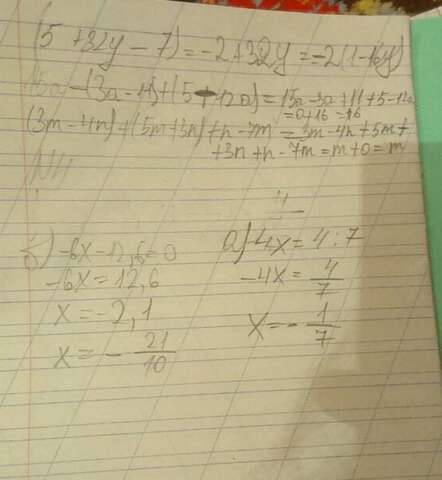 (5+32y-7)=-2+32y=-2(1-16y)
15a-(3a-11)+(5-12a)=15a-3a+11+5-12a
=0+16=16
(3m-4n)+(5m+3n)+n-7m=3m-4n+5m+
+3n+n-7m=m+0=m
N4
б) -6x-12,6=0
-6x=12,6
x=-2,1
x=-21/10
а) -4x=4:7
-4x=4/7
x=-1/7